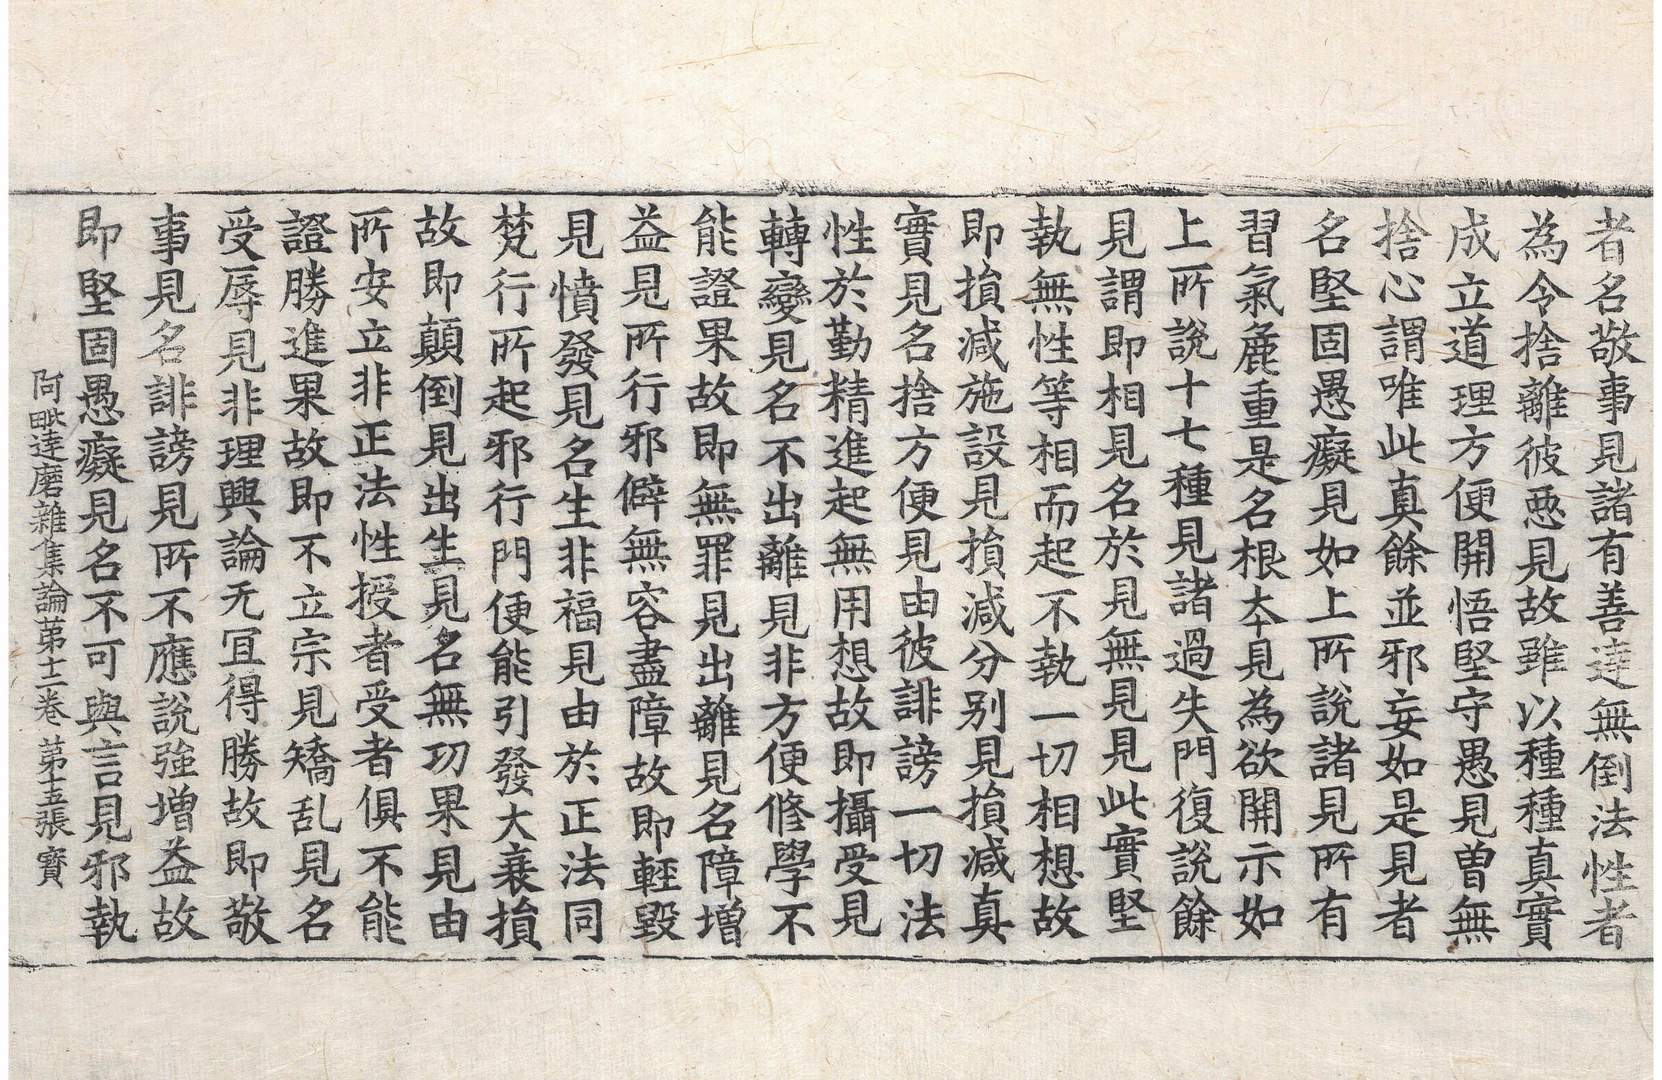 者名敬事見諸有善達無倒法性者
為令捨離彼惡見故雖以種種真實
成立道理方便開悟堅守愚見曾無
捨心謂唯此真餘並邪妄如是見者
名堅固愚癡見如上所說諸見所有
習氣麁重是名根本見為欲開示如
上所說十七種見諸過失門復說餘
見謂即相見名於見無見見此實堅
執無性等相而起不執一切相想故
即損減施設見損減分別見損減真
實見名捨方便見由彼誹謗一切法
性於勤精進起無用想故即攝受見
轉變見名不出離見非方便修學不
能證果故即無罪見出離見名障增
益見所行邪僻無容盡障故即輕毀
見憤發見名生非福見由於正法同
梵行所起邪行門便能引發大衰損
故即顛倒見出生見名無功果見由
所安立非正法性授者受者俱不能
證勝進果故即不立宗見矯乱見名
受辱見非理興論无冝得勝故即敬
事見名誹謗見所不應說強增益故
即堅固愚癡見名不可與言見邪執
阿毗達磨雜集論第十二卷 第十五張 寶